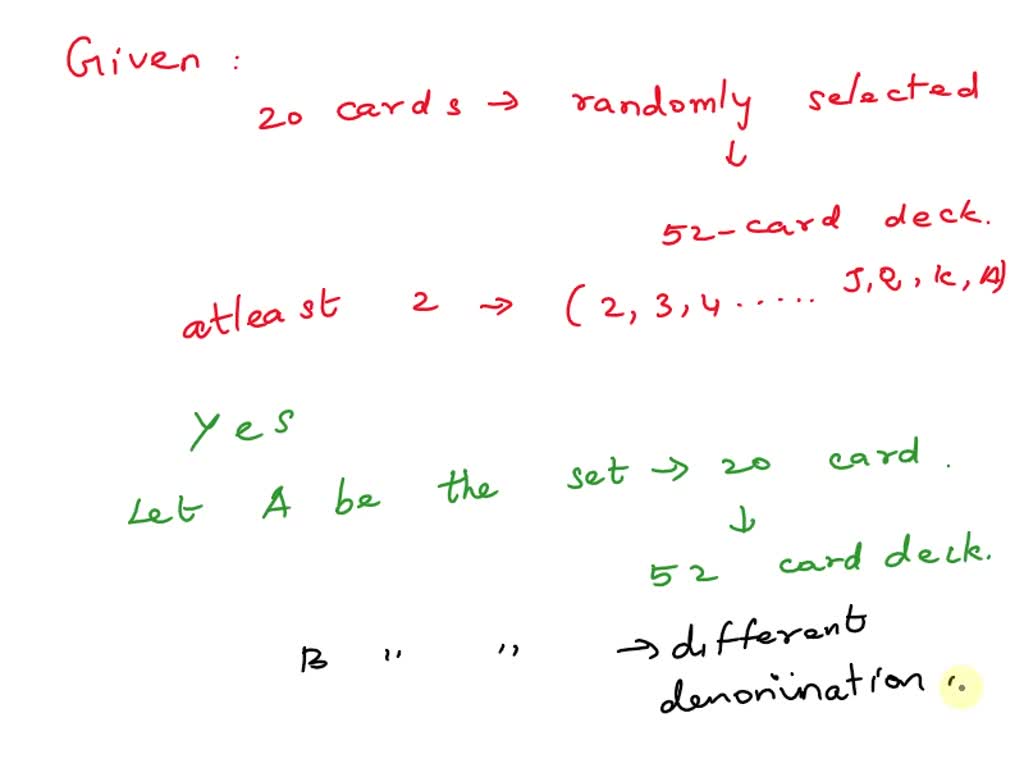 Given :
20 cards → randomly selected
↓
52-card deck.
atleast 2 → (2, 3, 4 ..... J, Q, K, A)
Yes
Let A be the set → 20 card.
↓
52 card deck.
B " " → different
denomination